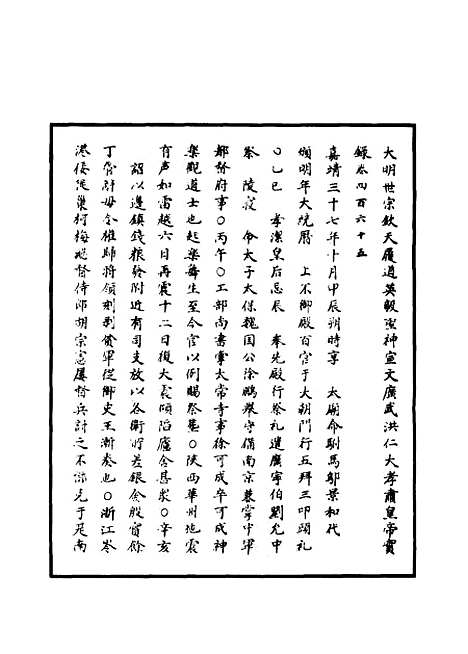 大明世宗欽天履道英毅聖神宣文廣武洪仁大孝肅皇帝實
錄卷四百六十五
嘉靖三十七年十月甲辰朔時享　太廟命駙馬鄔景和代
頒明年大統曆　上不御殿百官于大朝門行五拜三叩頭禮
○乙巳　孝潔皇后忌辰　奉先殿行祭礼遣廣寧伯劉允中
祭　陵寢　命太子太保魏国公徐鵬舉守備南京兼掌中軍
都督府事○丙午○工部尚書掌太常寺事徐可成卒可成神
樂觀道士也起樂舞生至今官以例賜祭塟○陝西華州地震
有声如雷越六日再震十二日復大震傾陷廬舍甚衆○辛亥
詔以邊鎮錢粮發附近有司支放以各衛所差銀舍殷實餘
丁管計毋令雄師将領剋剝貧軍從御史王漸奏也○浙江岑
港倭徙巢柯梅總督侍郎胡宗憲屢督兵討之不能克于是南